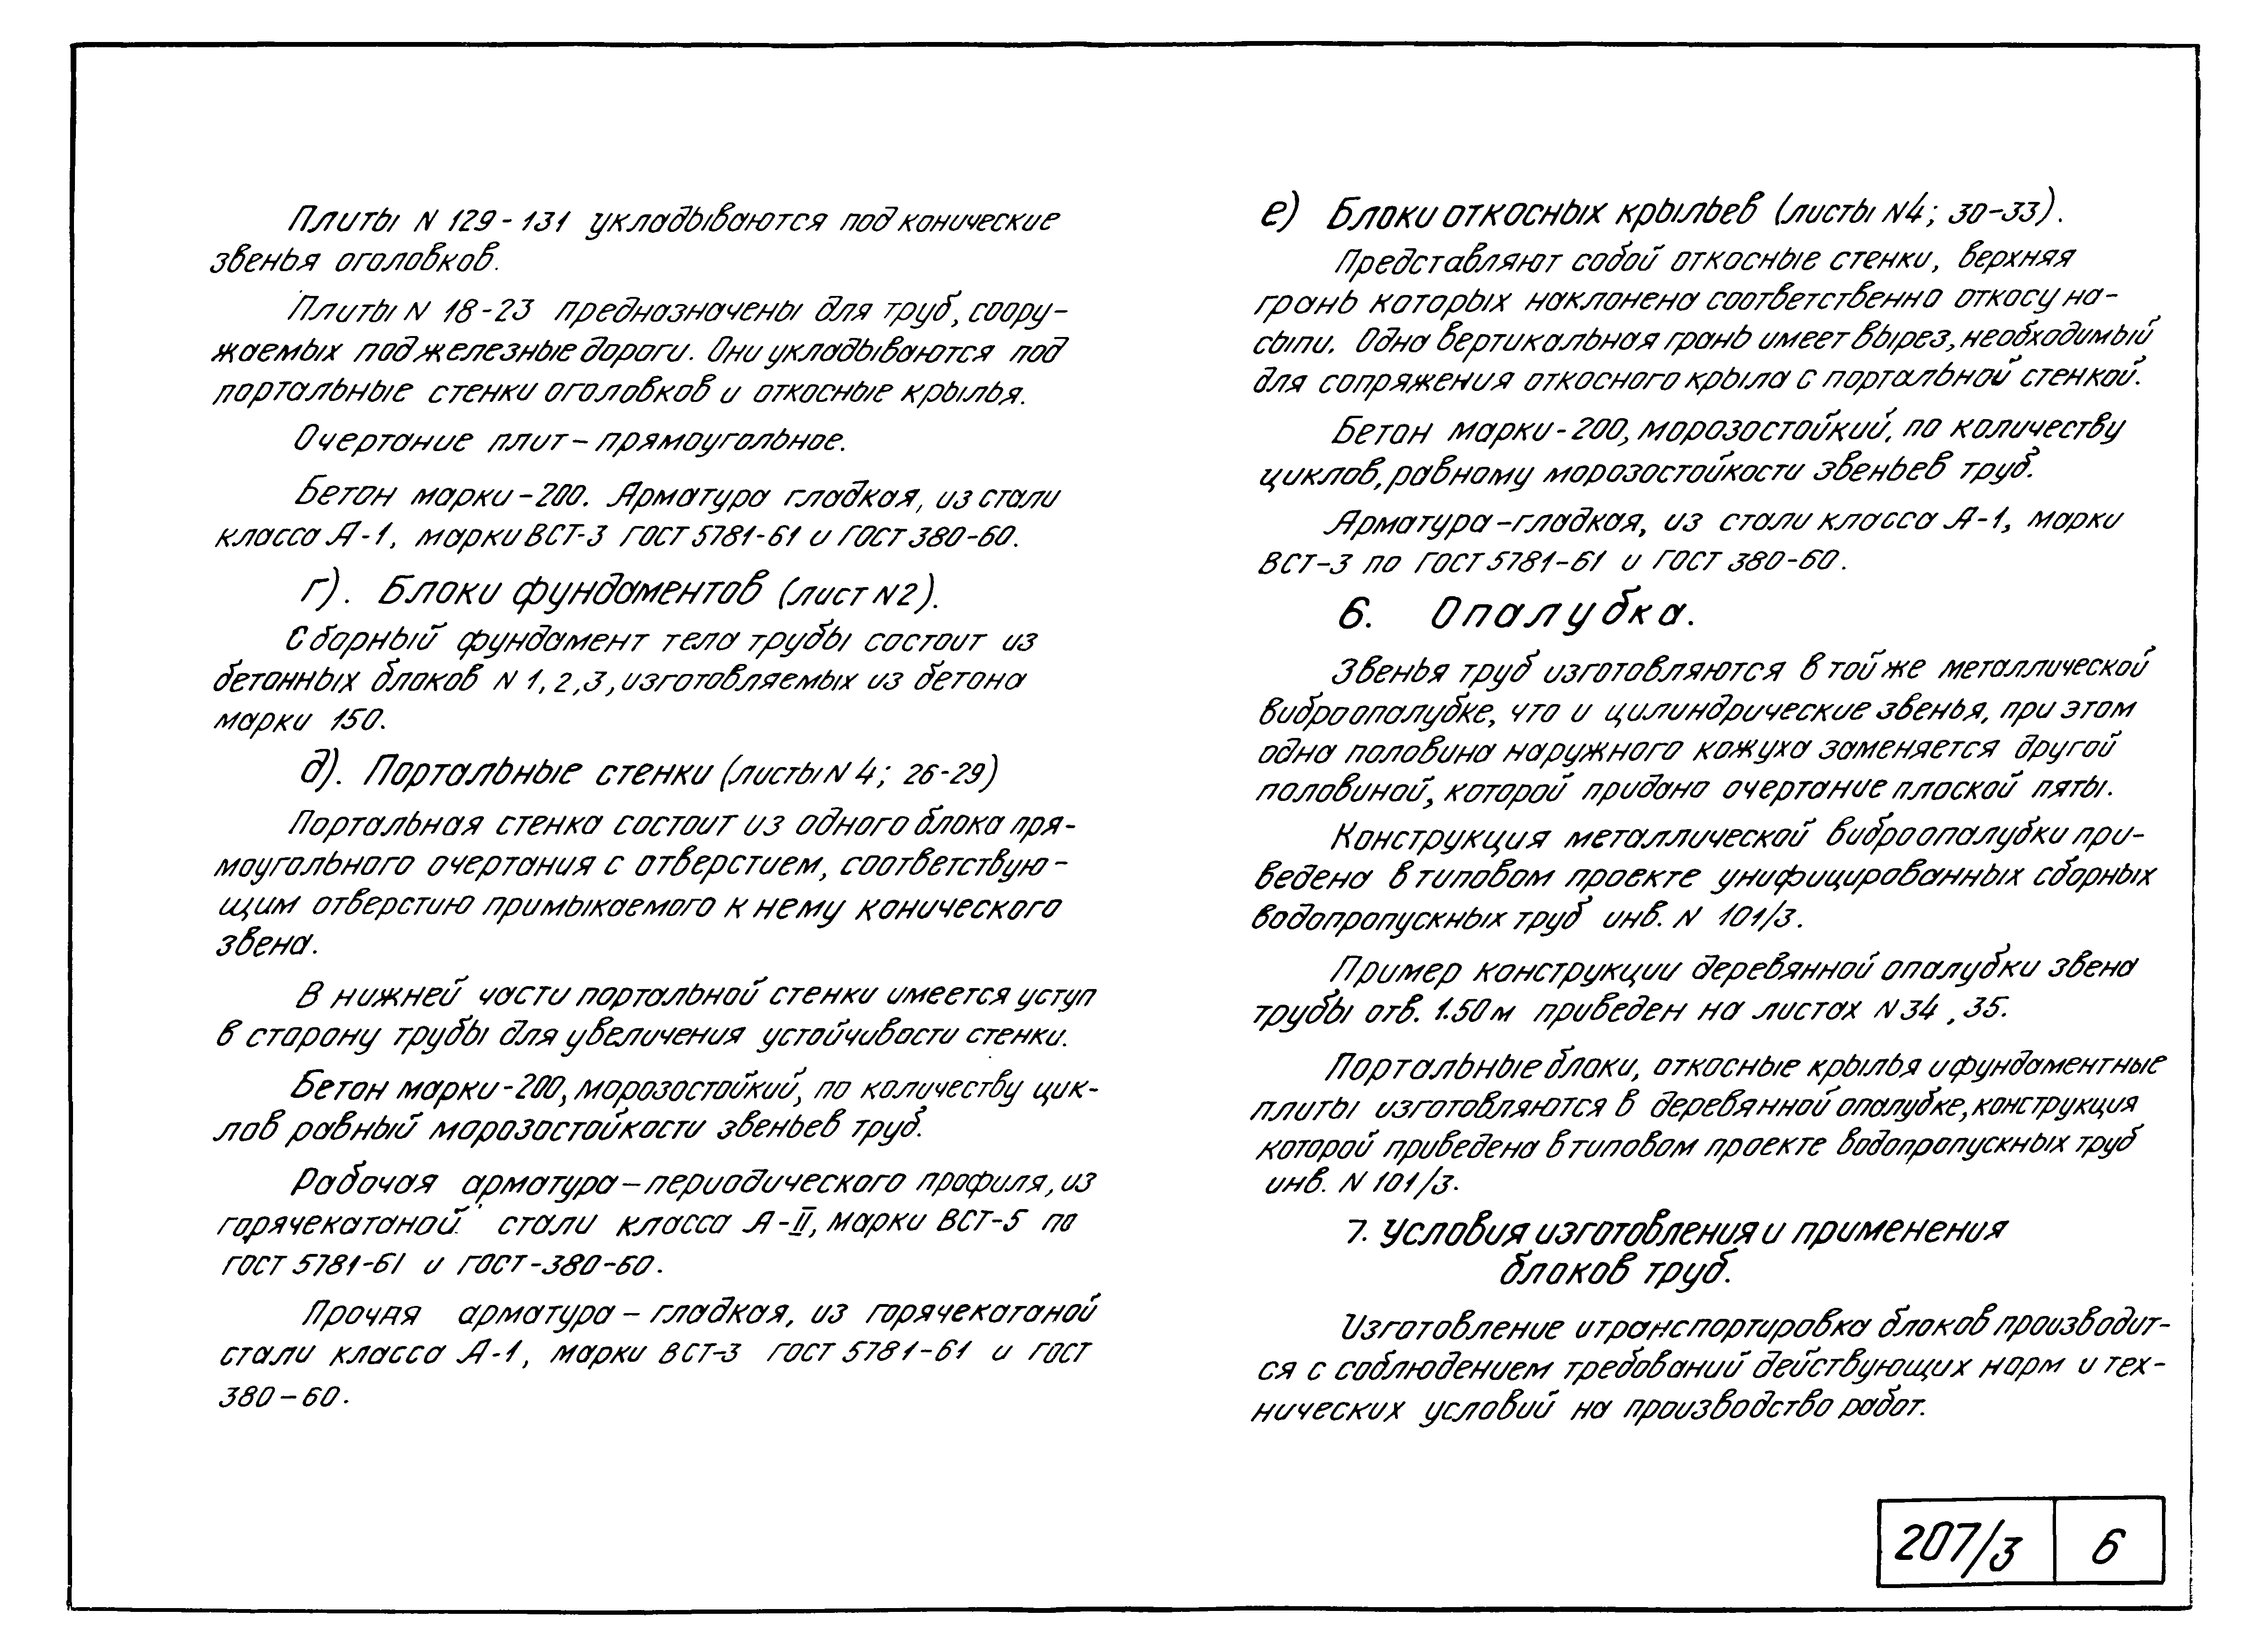 Плиты N 129-131 укладываются под конические
звенья оголовков.
Плиты N 18-23 предназначены для труб, соору-
жаемых под железные дороги. Они укладываются под
портальные стенки оголовков и откосные крылья.
Очертание плит – прямоугольное.
Бетон марки – 200. Арматура гладкая, из стали
класса А-1, марки ВСТ-3 ГОСТ 5781-61 и ГОСТ 380-60.
г). Блоки фундаментов (лист N2).
Сборный фундамент тела трубы состоит из
бетонных блоков N 1, 2, 3, изготовляемых из бетона
марки 150.
д). Портальные стенки (листы N 4; 26-29)
Портальная стенка состоит из одного блока пря-
моугольного очертания с отверстием, соответствую-
щим отверстию примыкаемого к нему конического
звена.
В нижней части портальной стенки имеется уступ
в сторону трубы для увеличения устойчивости стенки.
Бетон марки-200, морозостойкий, по количеству цик-
лов равный морозостойкости звеньев труб.
Рабочая арматура – периодического профиля, из
горячекатаной стали класса А-II, марки ВСТ-5 по
ГОСТ 5781-61 и ГОСТ-380-60.
Прочая арматура – гладкая, из горячекатаной
стали класса А-1, марки ВСТ-3 ГОСТ 5781-61 и ГОСТ
380-60.
е) Блоки откосных крыльев (листы N4; 30-33).
Представляют собой откосные стенки, верхняя
грань которых наклонена соответственно откосу на-
сыпи. Одна вертикальная грань имеет вырез, необходимый
для сопряжения откосного крыла с портальной стенкой.
Бетон марки-200, морозостойкий, по количеству
циклов, равному морозостойкости звеньев труб.
Арматура – гладкая, из стали класса А-1, марки
ВСТ-3 по ГОСТ 5781-61 и ГОСТ 380-60.
6. Опалубка.
Звенья труб изготовляются в той же металлической
виброопалубке, что и цилиндрические звенья, при этом
одна половина наружного кожуха заменяется другой
половиной, которой придано очертание плоской пяты.
Конструкция металлической виброопалубки при-
ведена в типовом проекте унифицированных сборных
водопропускных труб инв. N 101/3.
Пример конструкции деревянной опалубки звена
трубы отв. 1.50 м приведен на листах N 34, 35.
Портальные блоки, откосные крылья и фундаментные
плиты изготовляются в деревянной опалубке, конструкция
которой приведена в типовом проекте водопропускных труб
инв. N 101/3.
7. Условия изготовления и применения
блоков труб.
Изготовление и транспортировка блоков производит-
ся с соблюдением требований действующих норм и тех-
нических условий на производство работ.
207/3 6